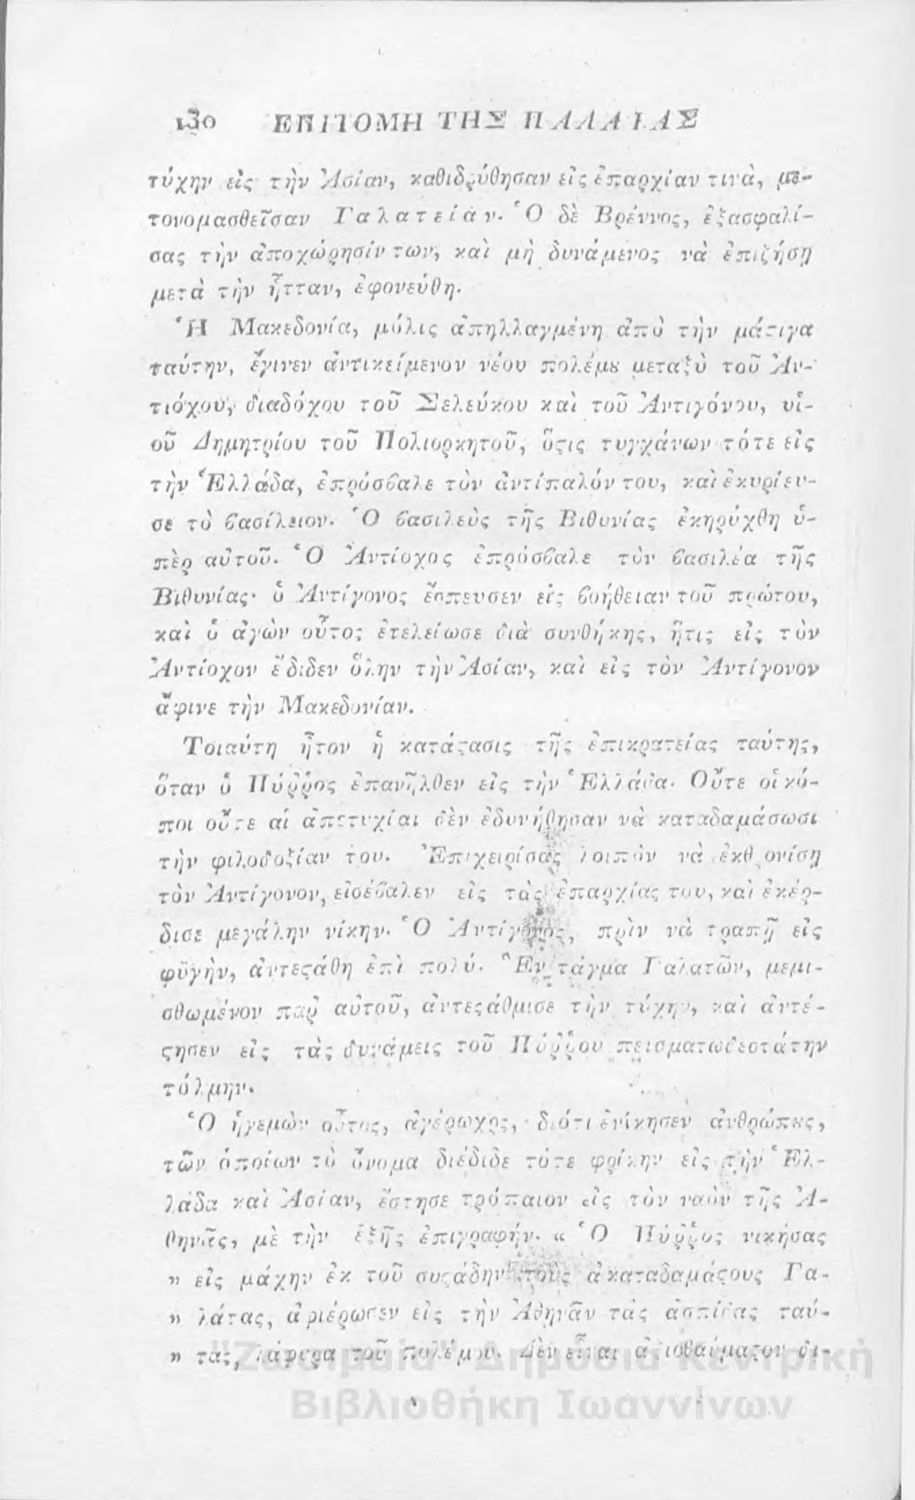 130 ΕΠΙΤΟΜΗ ΤΗΣ ΠΑΛΑΙΑΣ
τύχην εἰς τὴν Ἀσίαν, καθιδρύθησαν εἰς ἐπαρχίαν τινὰ, με-
τονομασθεῖσαν Γαλατείαν. Ὁ δὲ Βρέννος, ἐξασφαλί-
σας τὴν ἀποχώρησίν των, καὶ μὴ δυνάμενος νὰ ἐπιζήσῃ
μετὰ τὴν ἧτταν, ἐφονεύθη.
Ἡ Μακεδονία, μόλις ἀπηλλαγμένη ἀπὸ τὴν μάϛιγα
ταύτην, ἔγινεν ἀντικείμενον νέου πολέμȣ μεταξὺ τοῦ Ἀν-
τιόχου, διαδόχου τοῦ Σελεύκου καὶ τοῦ Ἀντιγόνου, υἱ-
οῦ Δημητρίου τοῦ Πολιορκητοῦ, ὅϛις τυγχάνων τότε εἰς
τὴν Ἑλλάδα, ἐπρόσβαλε τὸν ἀντίπαλόν του, καὶ ἐκυρίευ-
σε τὸ βασίλειον. Ὁ βασιλεὺς τῆς Βιθυνίας ἐκηρύχθη ὑ-
πὲρ αὐτοῦ. Ὁ Ἀντίοχος ἐπρόσβαλε τὸν βασιλέα τῆς
Βιθυνίας· ὁ Ἀντίγονος ἔσπευσεν εἰς βοήθειαν τοῦ πρώτου,
καὶ ὁ ἀγὼν οὗτος ἐτελείωσε διὰ συνθήκης, ἥτις εἰς τὸν
Ἀντίοχον ἔδιδεν ὅλην τὴν Ἀσίαν, καὶ εἰς τὸν Ἀντίγονον
ἄφινε τὴν Μακεδονίαν.
Τοιαύτη ἦτον ἡ κατάϛασις τῆς ἐπικρατείας ταύτης,
ὅταν ὁ Πύῤῥος ἐπανῆλθεν εἰς τὴν Ἑλλάδα. Οὔτε οἱ κό-
ποι οὔτε αἱ ἀποτυχίαι δὲν ἐδυνήθησαν νὰ καταδαμάσωσι
τὴν φιλοδοξίαν του. Ἐπιχειρίσας λοιπὸν νὰ ἐκθρονίσῃ
τὸν Ἀντίγονον, εἰσέβαλεν εἰς τὰς ἐπαρχίας του, καὶ ἐκέρ-
δισε μεγάλην νίκην. Ὁ Ἀντίγονος, πρὶν νὰ τραπῇ εἰς
φυγὴν, ἀντεϛάθη ἐπὶ πολύ. Ἓν τάγμα Γαλατῶν, μεμι-
σθωμένον παρ' αὐτοῦ, ἀντεϛάθμισε τὴν τύχην, καὶ ἀντέ-
ϛησεν εἰς τὰς δυνάμεις τοῦ Πύῤῥου πεισματωδεστάτην
τόλμην.
Ὁ ἡγεμὼν οὗτος, ἀγέρωχος, διότι ἐνίκησεν ἀνθρώπȣς,
τῶν ὁποίων τὸ ὄνομα διέδιδε τότε φρίκην εἰς τὴν Ἑλ-
λάδα καὶ Ἀσίαν, ἔστησε τρόπαιον εἰς τὸν ναὸν τῆς Ἀ-
θηνᾶς, μὲ τὴν ἑξῆς ἐπιγραφήν. « Ὁ Πύῤῥος νικήσας
» εἰς μάχην ἐκ τοῦ συϛάδην τοὺς ἀκαταδαμάϛους Γα-
» λάτας, ἀφιέρωσεν εἰς τὴν Ἀθηνᾶν τὰς ἀσπίδας ταύ-
» τας, λάφυρα τοῦ πολέμου. Δὲν εἶναι ἀξιοθαύμαϛον δι-
"Ζωσιμαία" Δημόσια Κεντρική
Βιβλιοθήκη Ιωαννίνων